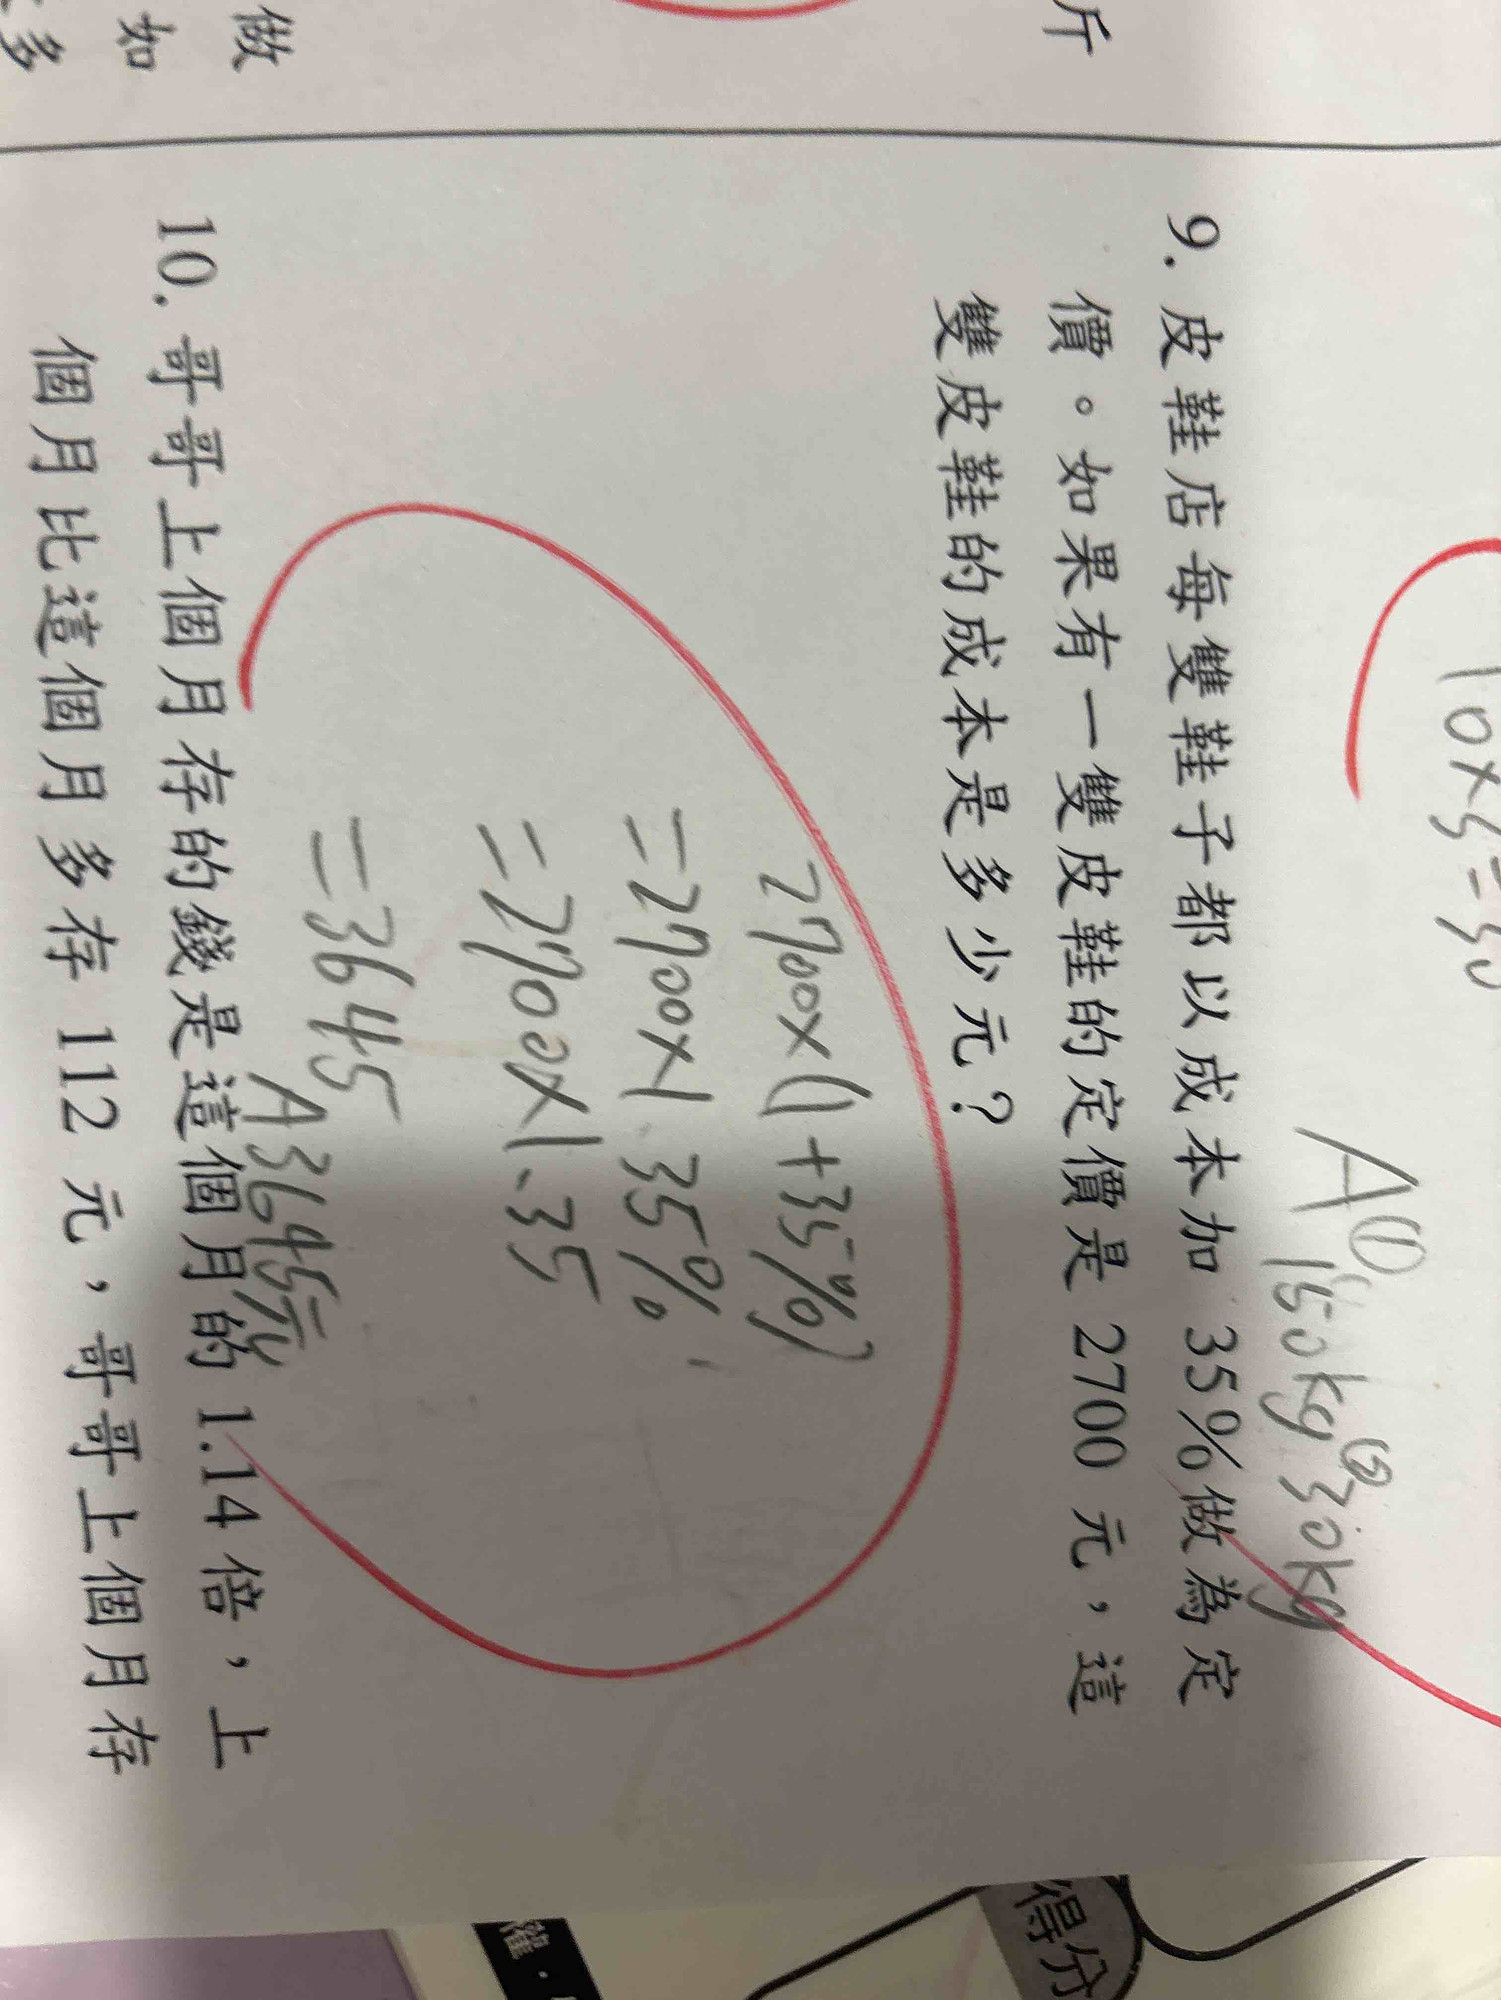 斤
做
如
多
10×5=50
A(1)150kg(2)30kg
9. 皮鞋店每雙鞋子都以成本加 35%做為定
價。如果有一雙皮鞋的定價是 2700 元，這
雙皮鞋的成本是多少元？
2700×(1+35%)
=2700×1.35%
=2700×1.35
=3645
A3645元
10. 哥哥上個月存的錢是這個月的 1.14 倍，上
個月比這個月多存 112 元，哥哥上個月存
得分